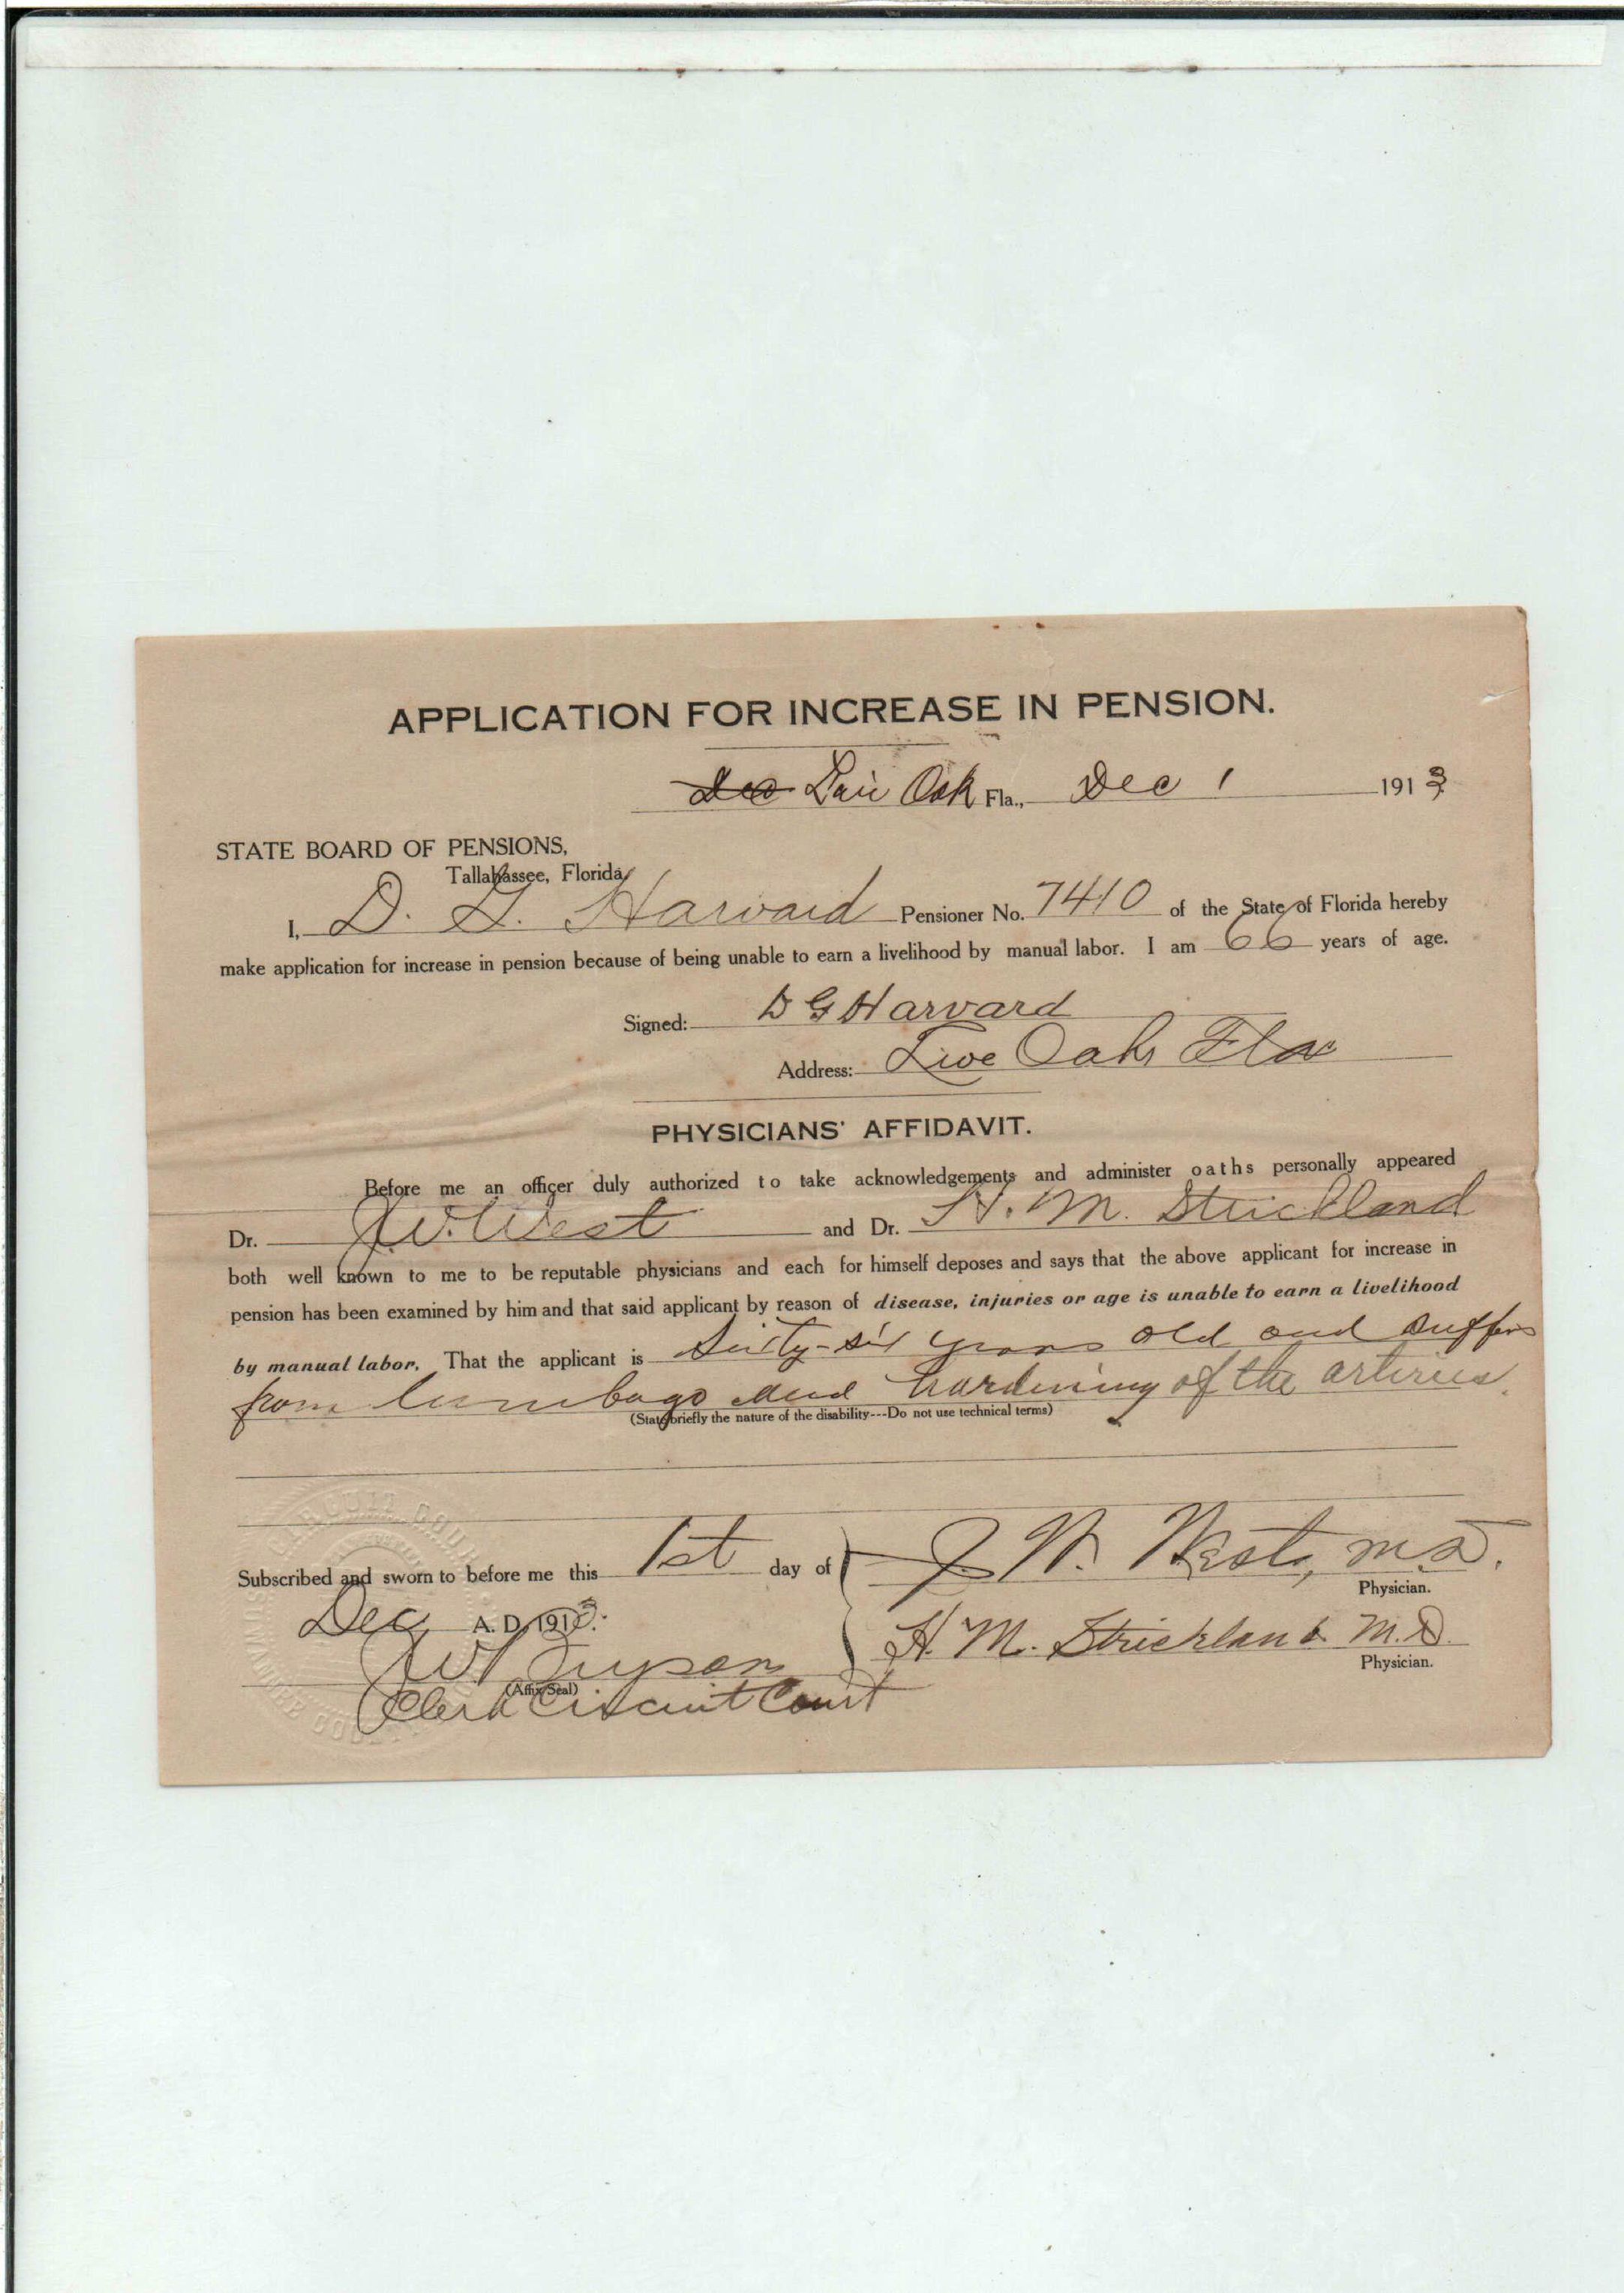 APPLICATION FOR INCREASE IN PENSION.
Dec Live Oak Fla., Dec 1 1913
STATE BOARD OF PENSIONS,
Tallahassee, Florida
I, D. G. Harvard Pensioner No. 7410 of the State of Florida hereby
make application for increase in pension because of being unable to earn a livelihood by manual labor. I am 66 years of age.
Signed: D G Harvard
Address: Live Oak Fla
PHYSICIANS' AFFIDAVIT.
Before me an officer duly authorized to take acknowledgements and administer oaths personally appeared
Dr. J. W. West and Dr. H. M. Strickland
both well known to me to be reputable physicians and each for himself deposes and says that the above applicant for increase in
pension has been examined by him and that said applicant by reason of disease, injuries or age is unable to earn a livelihood
by manual labor. That the applicant is Sixty-six years old and suffers
from lumbago and hardening of the arteries.
(State briefly the nature of the disability---Do not use technical terms)
Subscribed and sworn to before me this 1st day of
J. W. West, M.D.
Physician.
Dec A. D. 1913.
H. M. Strickland M.D.
Physician.
J W Bryson
(Affix Seal)
Clerk Circuit Court
CIRCUIT COURT
SUWANNEE CO